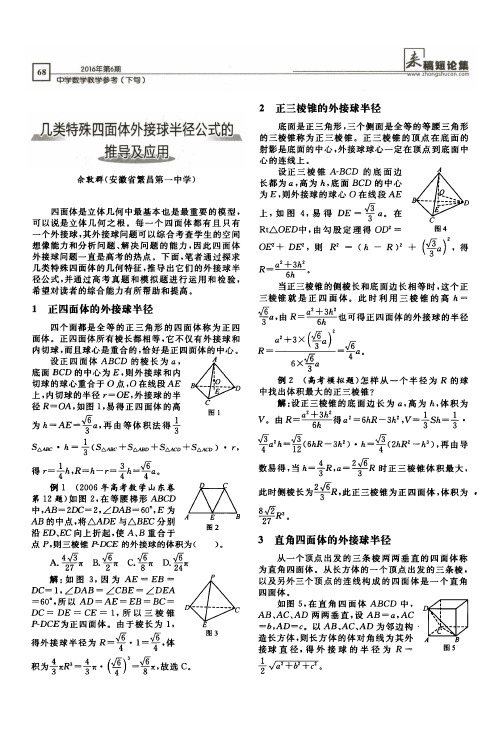 68
2016年第6期
中学数学教学参考(下旬)
来稿短论集
www.zhongshucan.com
几类特殊四面体外接球半径公式的
推导及应用
余敦群(安徽省繁昌第一中学)
四面体是立体几何中最基本也是最重要的模型,
可以说是立体几何之根。每一个四面体都有且只有
一个外接球,其外接球问题可以综合考查学生的空间
想像能力和分析问题、解决问题的能力,因此四面体
外接球问题一直是高考的热点。下面,笔者通过探求
几类特殊四面体的几何特征,推导出它们的外接球半
径公式,并通过高考真题和模拟题进行运用和检验,
希望对读者的综合能力有所帮助和提高。
1 正四面体的外接球半径
四个面都是全等的正三角形的四面体称为正四
面体。正四面体所有棱长都相等,它不仅有外接球和
内切球,而且球心是重合的,恰好是正四面体的中心。
设正四面体 ABCD 的棱长为 a,
底面 BCD 的中心为 E,则外接球和内
切球的球心重合于 O 点,O 在线段 AE
上,内切球的半径 r=OE,外接球的半
径 R=OA,如图 1,易得正四面体的高
图 1
为 h=AE=√6/3 a,再由等体积法得 1/3
S△ABC · h = 1/3 (S△ABC + S△ABD + S△ACD + S△ACD) · r,
得 r=1/4 h,R=h-r=3/4 h=√6/4 a。
例 1 (2006 年高考数学山东卷
第 12 题)如图 2,在等腰梯形 ABCD
中,AB=2DC=2,∠DAB=60°,E 为
AB 的中点,将△ADE 与△BEC 分别
沿 ED、EC 向上折起,使 A、B 重合于
图 2
点 P,则三棱锥 P-DCE 的外接球的体积为( )。
A. 4√3/27 π B. √6/2 π C. √6/8 π D. √6/24 π
解:如图 3,因为 AE = EB =
DC=1,∠DAB = ∠CBE = ∠DEA
=60°,所以 AD=AE=EB=BC=
DC = DE = CE = 1,所以三棱锥
P-DCE为正四面体。由于棱长为 1,
图 3
得外接球半径为 R=√6/4 · 1=√6/4,体
积为 4/3 πR³=4/3 π·(√6/4)³=√6/8 π,故选 C。
2 正三棱锥的外接球半径
底面是正三角形,三个侧面是全等的等腰三角形
的三棱锥称为正三棱锥。正三棱锥的顶点在底面的
射影是底面的中心,外接球球心一定在顶点到底面中
心的连线上。
设正三棱锥 A-BCD 的底面边
长都为 a,高为 h,底面 BCD 的中心
为 E,则外接球的球心 O 在线段 AE
上,如图 4,易得 DE = √3/3 a。在
图 4
Rt△OED中,由勾股定理得 OD² =
OE² + DE²,则 R² = (h − R)² + (√3/3 a)²,得
R=(a²+3h²)/6h。
当正三棱锥的侧棱长和底面边长相等时,这个正
三棱锥就是正四面体。此时利用三棱锥的高 h =
√6/3 a,由 R=(a²+3h²)/6h 也可得正四面体的外接球的半径
R=(a²+3×(√6/3 a)²)/(6×√6/3 a)=√6/4 a。
例 2 (高考模拟题)怎样从一个半径为 R 的球
中找出体积最大的正三棱锥?
解:设正三棱锥的底面边长为 a,高为 h,体积为
V。由 R=(a²+3h²)/6h 得 a²=6hR−3h²,V=1/3 Sh=1/3 ·
√3/4 a²h=√3/12 (6hR−3h²)·h=√3/4 (2hR²−h²),再由导
数易得,当 h=4/3 R,a=2√6/3 R 时正三棱锥体积最大,
此时侧棱长为 2√6/3 R,此正三棱锥为正四面体,体积为
8√3/27 R³。
3 直角四面体的外接球半径
从一个顶点出发的三条棱两两垂直的四面体称
为直角四面体。从长方体的一个顶点出发的三条棱,
以及另外三个顶点的连线构成的四面体是一个直角
四面体。
如图 5,在直角四面体 ABCD 中,
AB、AC、AD 两两垂直,设 AB=a,AC
=b,AD=c。以 AB、AC、AD 为邻边构
造长方体,则长方体的体对角线为其外
接球直径,得外接球的半径为 R =
图 5
1/2 √(a²+b²+c²)。